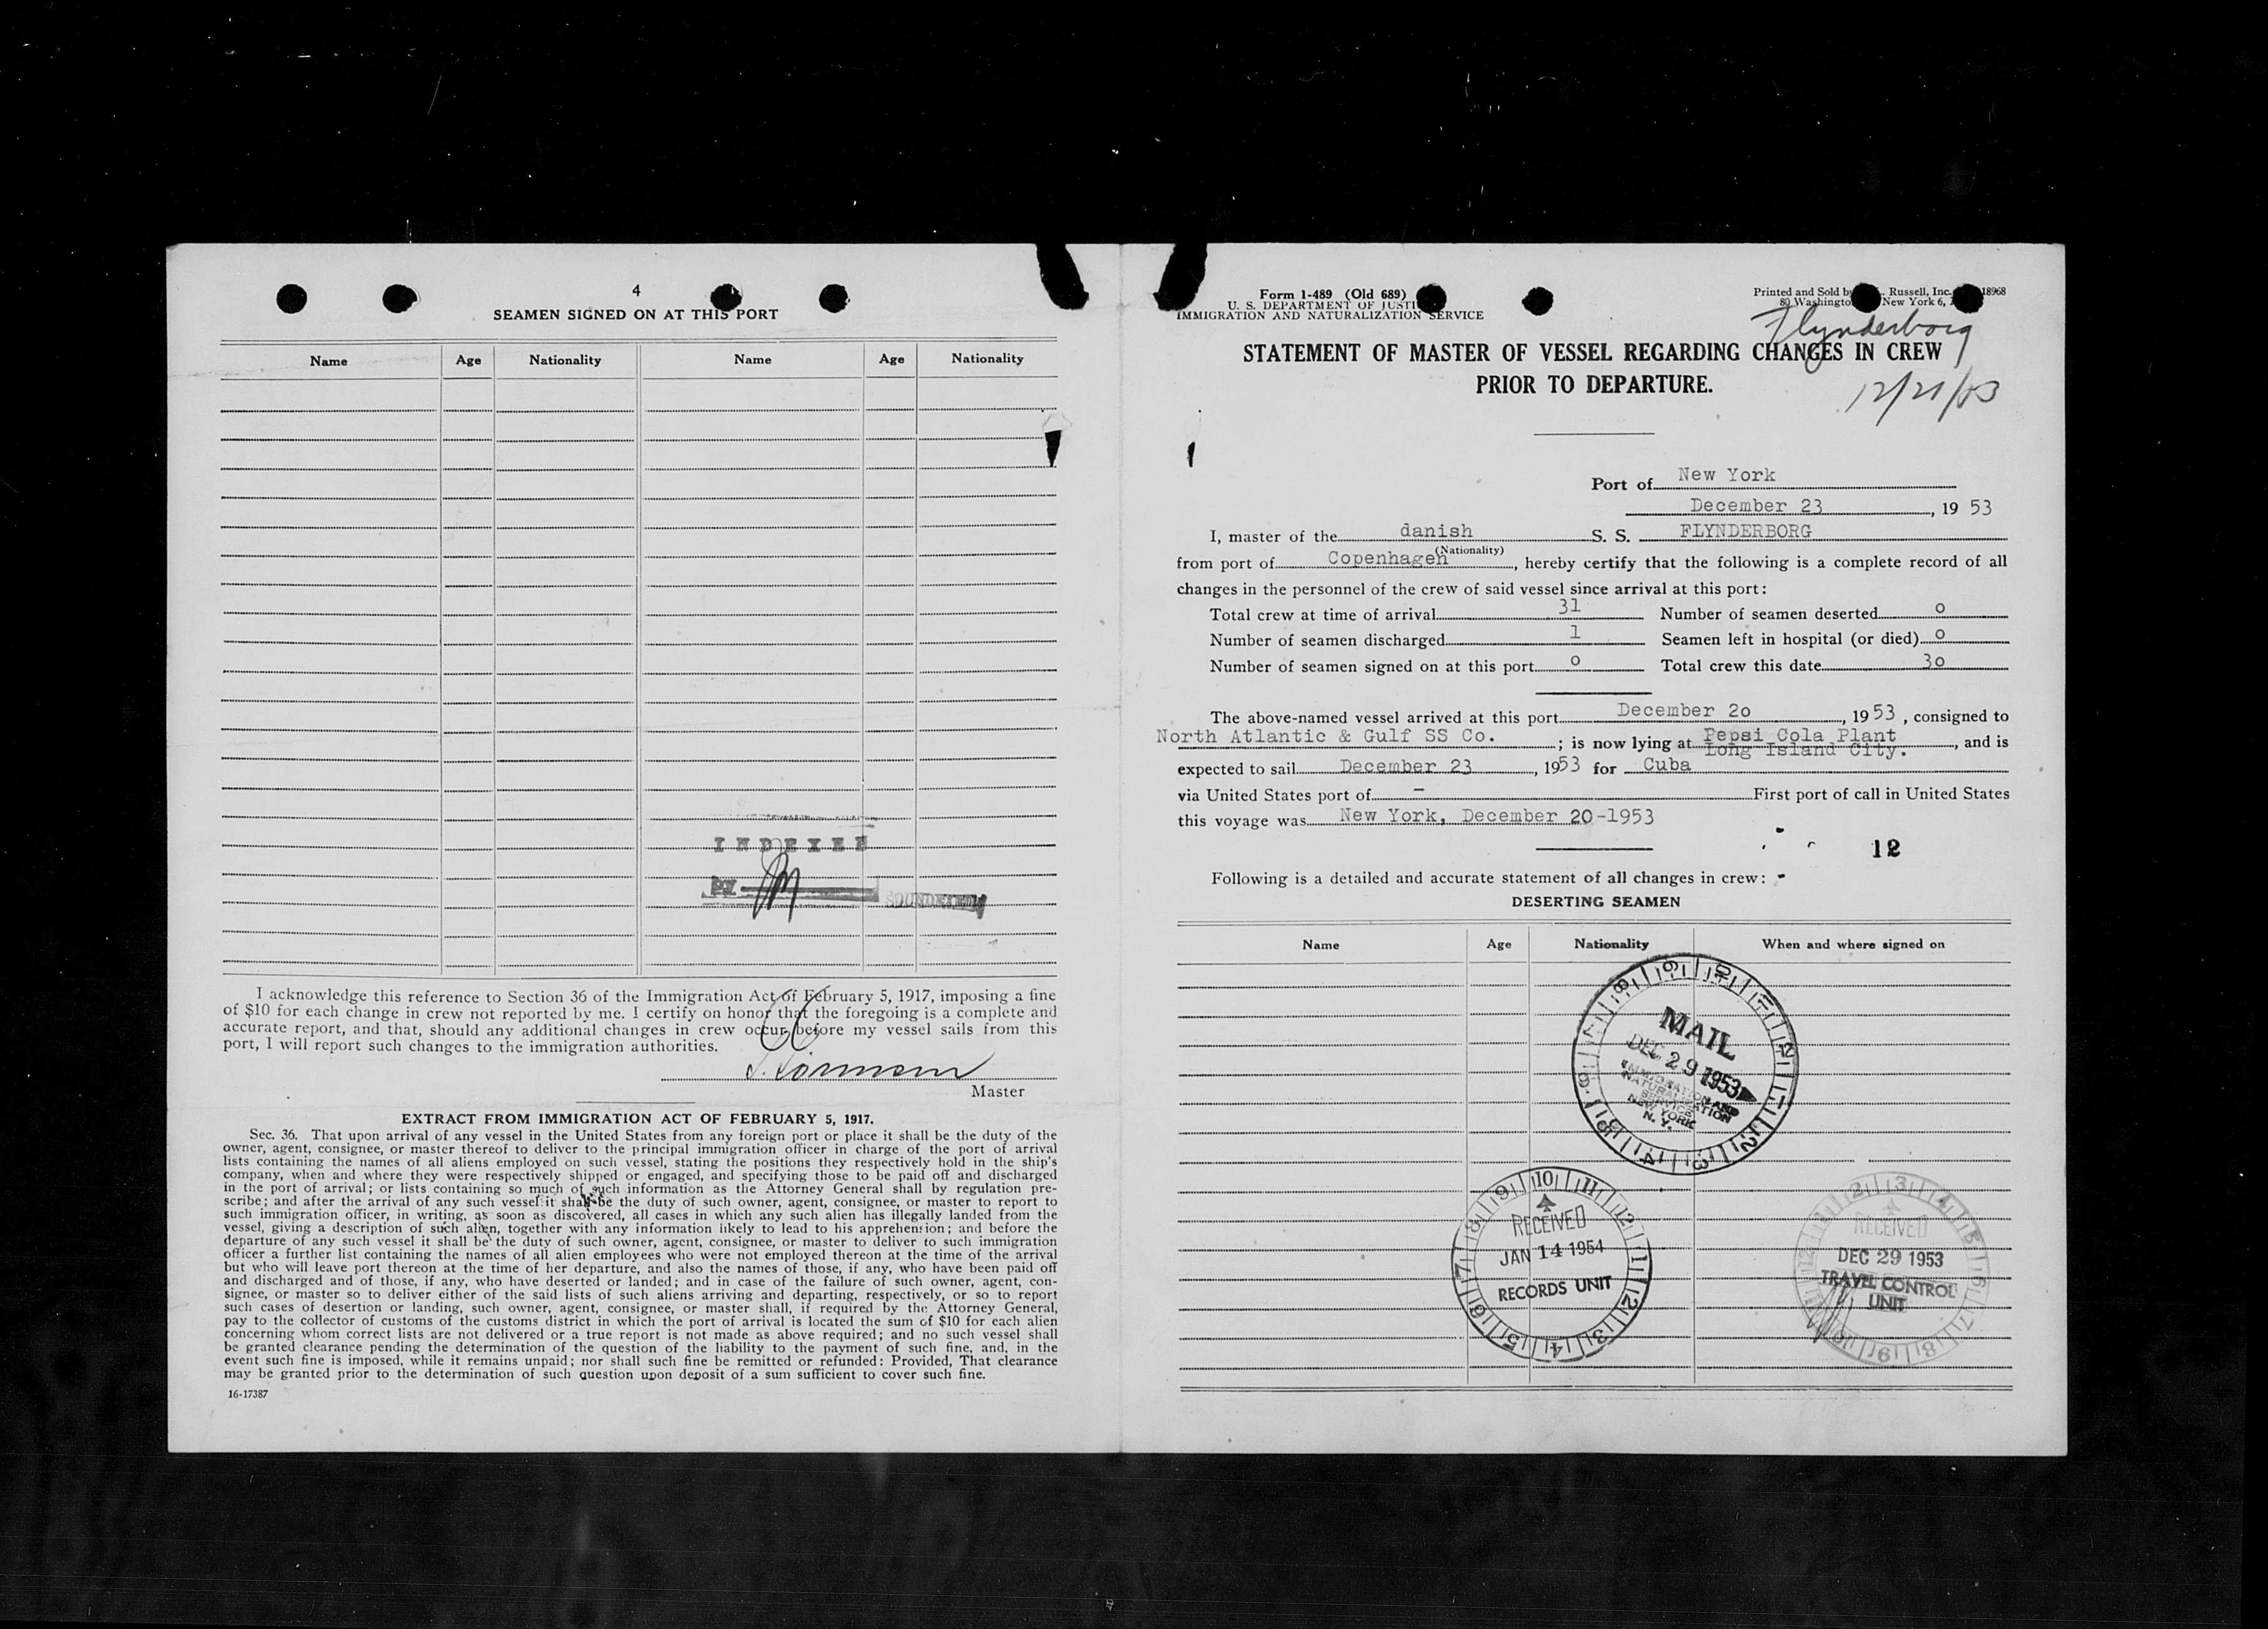 4
SEAMEN SIGNED ON AT THIS PORT
Name Age Nationality Name Age Nationality
INDEXED
BY
SOUNDEXED
I acknowledge this reference to Section 36 of the Immigration Act of February 5, 1917, imposing a fine
of $10 for each change in crew not reported by me. I certify on honor that the foregoing is a complete and
accurate report, and that, should any additional changes in crew occur before my vessel sails from this
port, I will report such changes to the immigration authorities.
Master
EXTRACT FROM IMMIGRATION ACT OF FEBRUARY 5, 1917.
Sec. 36. That upon arrival of any vessel in the United States from any foreign port or place it shall be the duty of the
owner, agent, consignee, or master thereof to deliver to the principal immigration officer in charge of the port of arrival
lists containing the names of all aliens employed on such vessel, stating the positions they respectively hold in the ship's
company, when and where they were respectively shipped or engaged, and specifying those to be paid off and discharged
in the port of arrival; or lists containing so much of such information as the Attorney General shall by regulation pre-
scribe; and after the arrival of any such vessel it shall be the duty of such owner, agent, consignee, or master to report to
such immigration officer, in writing, as soon as discovered, all cases in which any such alien has illegally landed from the
vessel, giving a description of such alien, together with any information likely to lead to his apprehension; and before the
departure of any such vessel it shall be the duty of such owner, agent, consignee, or master to deliver to such immigration
officer a further list containing the names of all alien employees who were not employed thereon at the time of the arrival
but who will leave port thereon at the time of her departure, and also the names of those, if any, who have been paid off
and discharged and of those, if any, who have deserted or landed; and in case of the failure of such owner, agent, con-
signee, or master so to deliver either of the said lists of such aliens arriving and departing, respectively, or so to report
such cases of desertion or landing, such owner, agent, consignee, or master shall, if required by the Attorney General,
pay to the collector of customs of the customs district in which the port of arrival is located the sum of $10 for each alien
concerning whom correct lists are not delivered or a true report is not made as above required; and no such vessel shall
be granted clearance pending the determination of the question of the liability to the payment of such fine, and, in the
event such fine is imposed, while it remains unpaid; nor shall such fine be remitted or refunded: Provided, That clearance
may be granted prior to the determination of such question upon deposit of a sum sufficient to cover such fine.
16-17387
Form 1-489 (Old 689)
U. S. DEPARTMENT OF JUSTI
IMMIGRATION AND NATURALIZATION SERVICE
Printed and Sold by Russell, Inc. 18968
80 Washingto New York 6,
Flynderborg
12/21/53
STATEMENT OF MASTER OF VESSEL REGARDING CHANGES IN CREW
PRIOR TO DEPARTURE.
Port of New York
December 23, 1953
I, master of the danish S. S. FLYNDERBORG
(Nationality)
from port of Copenhagen, hereby certify that the following is a complete record of all
changes in the personnel of the crew of said vessel since arrival at this port:
Total crew at time of arrival 31 Number of seamen deserted o
Number of seamen discharged 1 Seamen left in hospital (or died) o
Number of seamen signed on at this port o Total crew this date 3o
The above-named vessel arrived at this port December 2o, 1953, consigned to
North Atlantic & Gulf SS Co.; is now lying at Pepsi Cola Plant Long Island City., and is
expected to sail December 23, 1953 for Cuba
via United States port of - First port of call in United States
this voyage was New York, December 20-1953
12
Following is a detailed and accurate statement of all changes in crew:
DESERTING SEAMEN
Name Age Nationality When and where signed on
MAIL
DEC 29 1953
IMMIGRATION AND
NATURALIZATION
SERVICE
NEW YORK
N. Y.
RECEIVED
JAN 14 1954
RECORDS UNIT
RECEIVED
DEC 29 1953
TRAVEL CONTROL
UNIT